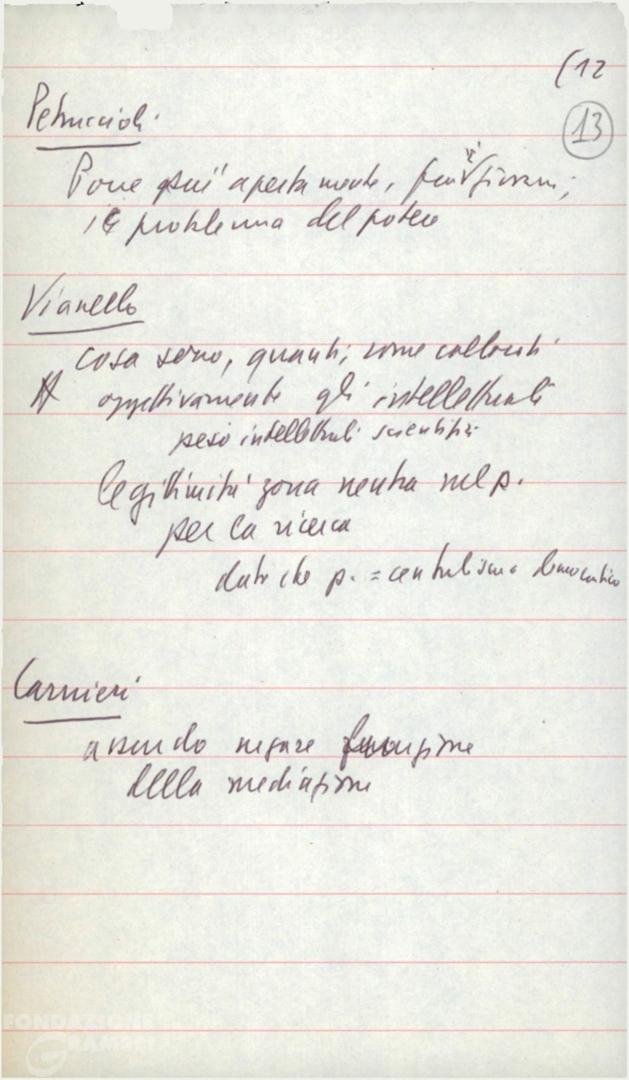 (12
13
Petruccioli
Pone più apertamente, fra i giovani,
il problema del potere
Vianello
cosa sono, quanti, come collocati
oggettivamente gli intellettuali
peso intellettuali scientifici
legittimità zona neutra nel p.
per la ricerca
dato che p. = centralismo democratico
Carnieri
assurdo negare funzione
della mediazione
FONDAZIONE
GRAMSCI